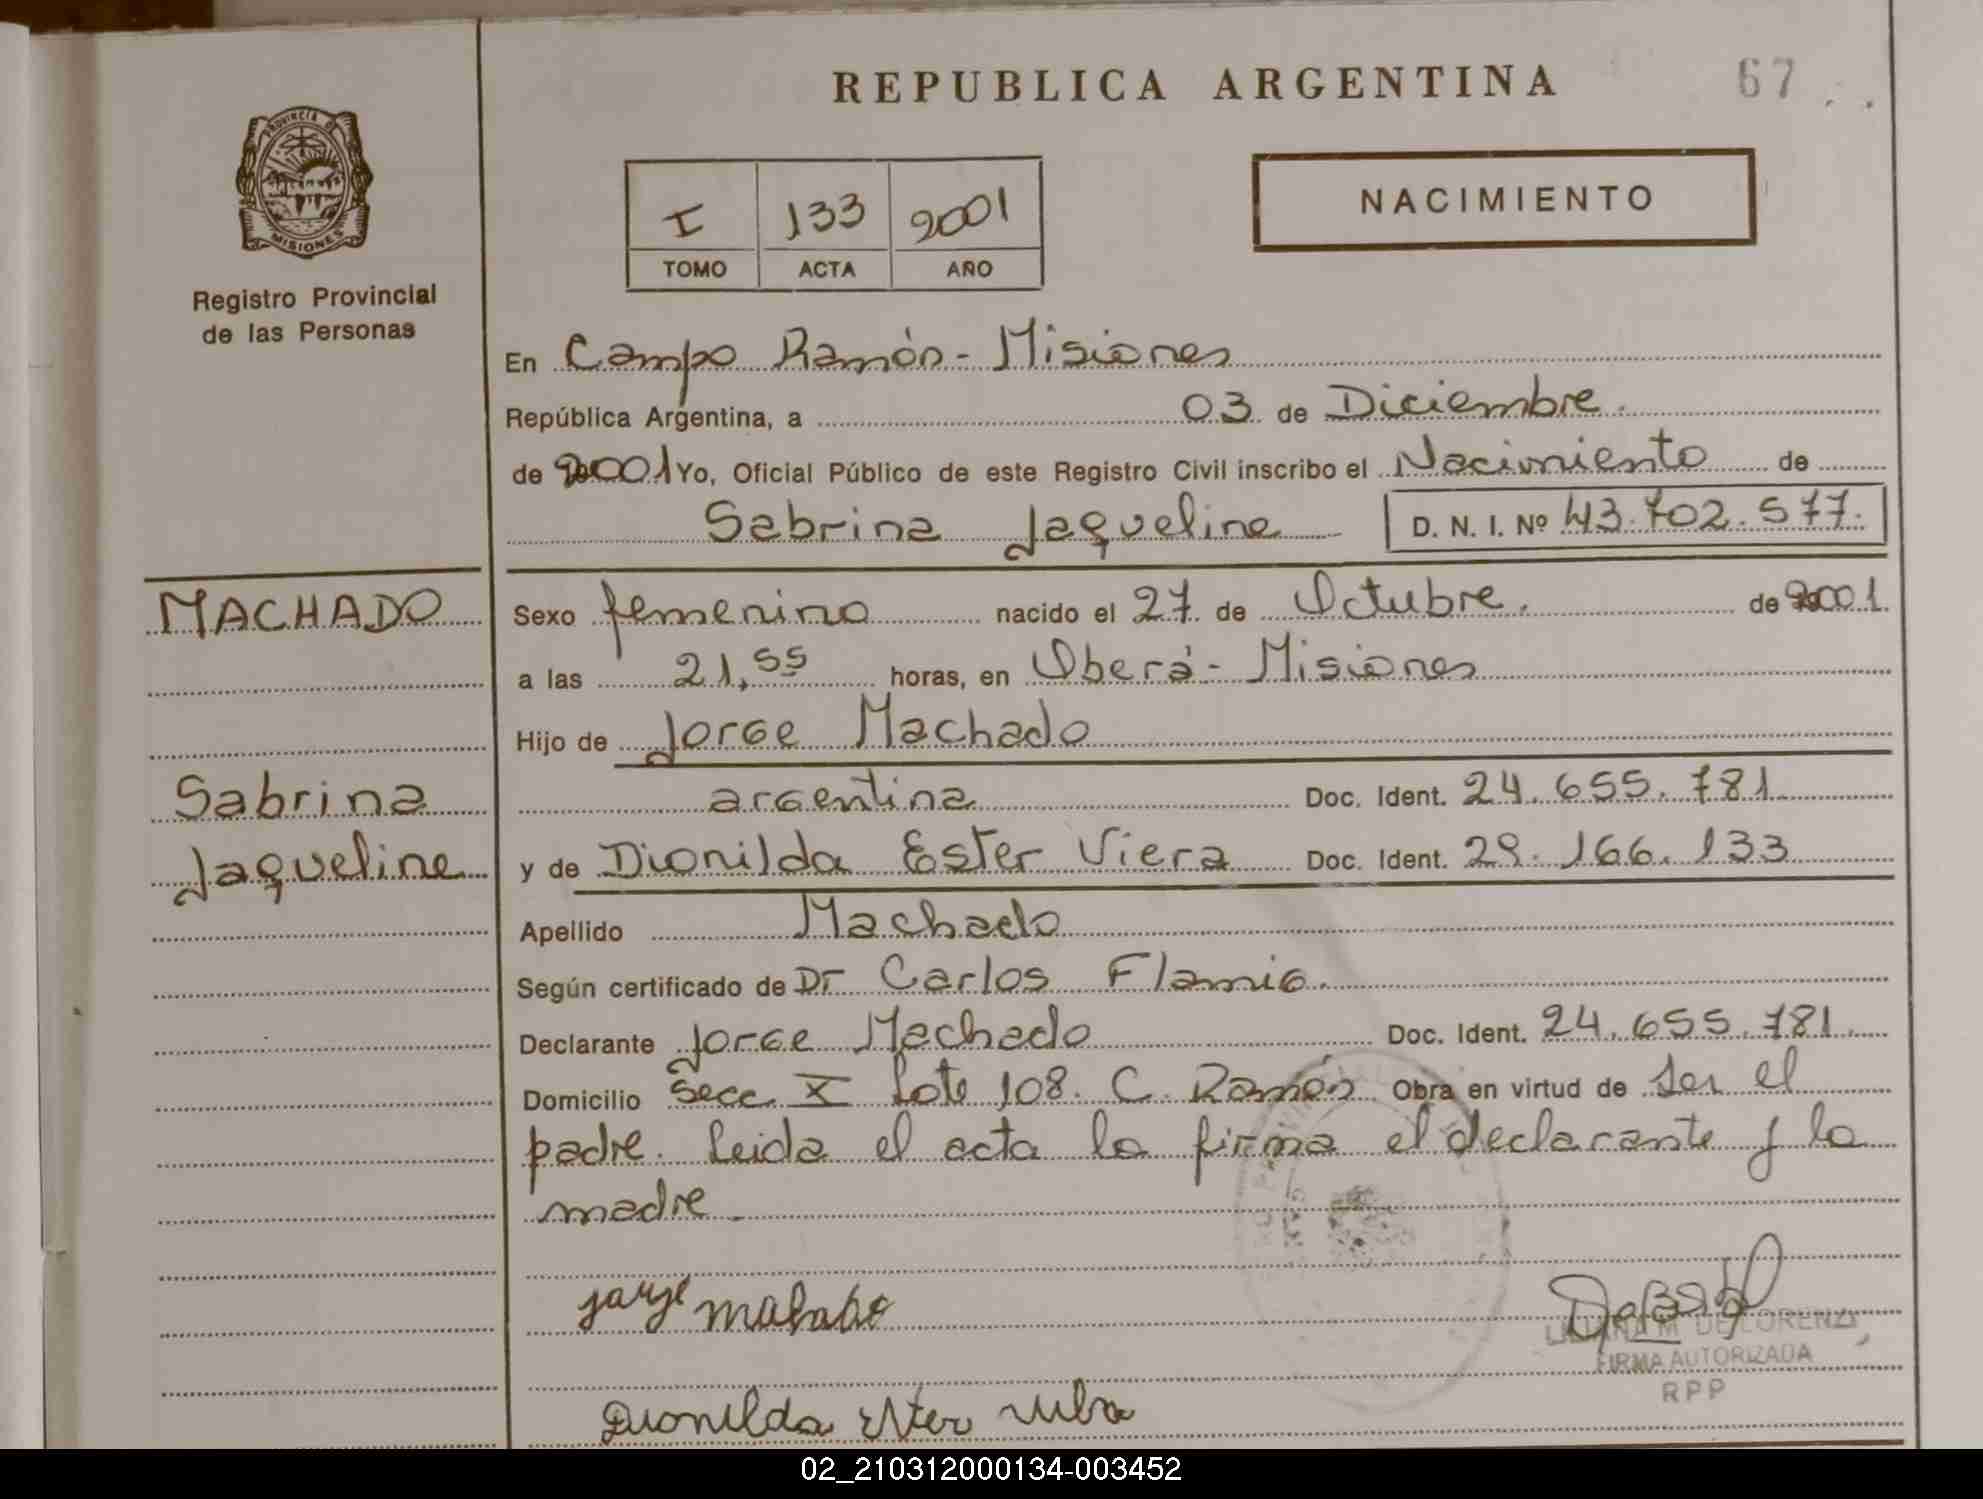 REPUBLICA ARGENTINA
67
PROVINCIA DE
MISIONES
Registro Provincial
de las Personas
I 133 2001
TOMO ACTA AÑO
NACIMIENTO
En Campo Ramón - Misiones
República Argentina, a 03 de Diciembre.
de 2001 Yo, Oficial Público de este Registro Civil inscribo el Nacimiento de
Sabrina Jaqueline D. N. I. Nº 43.702.577.
MACHADO
Sexo femenino nacido el 27 de Octubre. de 2001.
a las 21,55 horas, en Oberá - Misiones
Hijo de Jorge Machado
Sabrina
argentina Doc. Ident. 24.655.781
Jaqueline
y de Dionilda Ester Viera Doc. Ident. 29.166.133
Apellido Machado
Según certificado de Dr Carlos Flamio.
Declarante Jorge Machado Doc. Ident. 24.655.781.
Domicilio Secc. X Lote 108. C. Ramón Obra en virtud de Ser el
padre. Leida el acta la firma el declarante y la
madre.
LILIANA M. DE LORENZI
FIRMA AUTORIZADA
RPP
Dionilda Ester
02_210312000134-003452